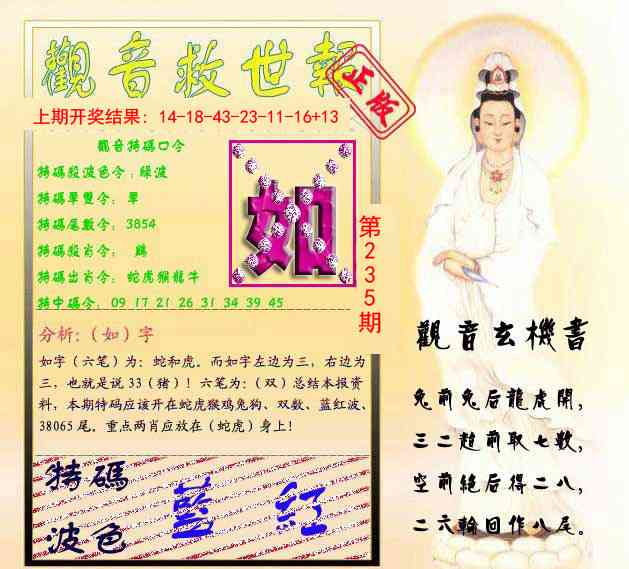 觀音救世報
正版
上期开奖结果：14-18-43-23-11-16+13
觀音特碼口令
特碼殺波色令：綠波
特碼單雙令：單
特碼尾數令：3854
特碼殺肖令：鷄
特碼出肖令：蛇虎猴龍牛
特中碼令：09 17 21 26 31 34 39 45
如
第235期
分析:（如）字
如字（六笔）为：蛇和虎。而如字左边为三，右边为
三，也就是说 33（猪）！六笔为：（双）总结本报资
料，本期特码应该开在蛇虎猴鸡兔狗、双数、蓝红波、
38065 尾。重点两肖应放在（蛇虎）身上！
特碼
波色
藍 紅
觀音玄機書
兔前兔后龍虎開，
三二趕前取七數，
空前絕后得二八，
二六輪回作八尾。